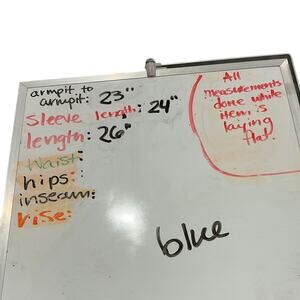 armpit to
armpit: 23"
Sleeve length: 24"
length: 26"
Waist:
hips:
inseam:
rise:
All
measurements
done while
item is
laying
flat.
blue